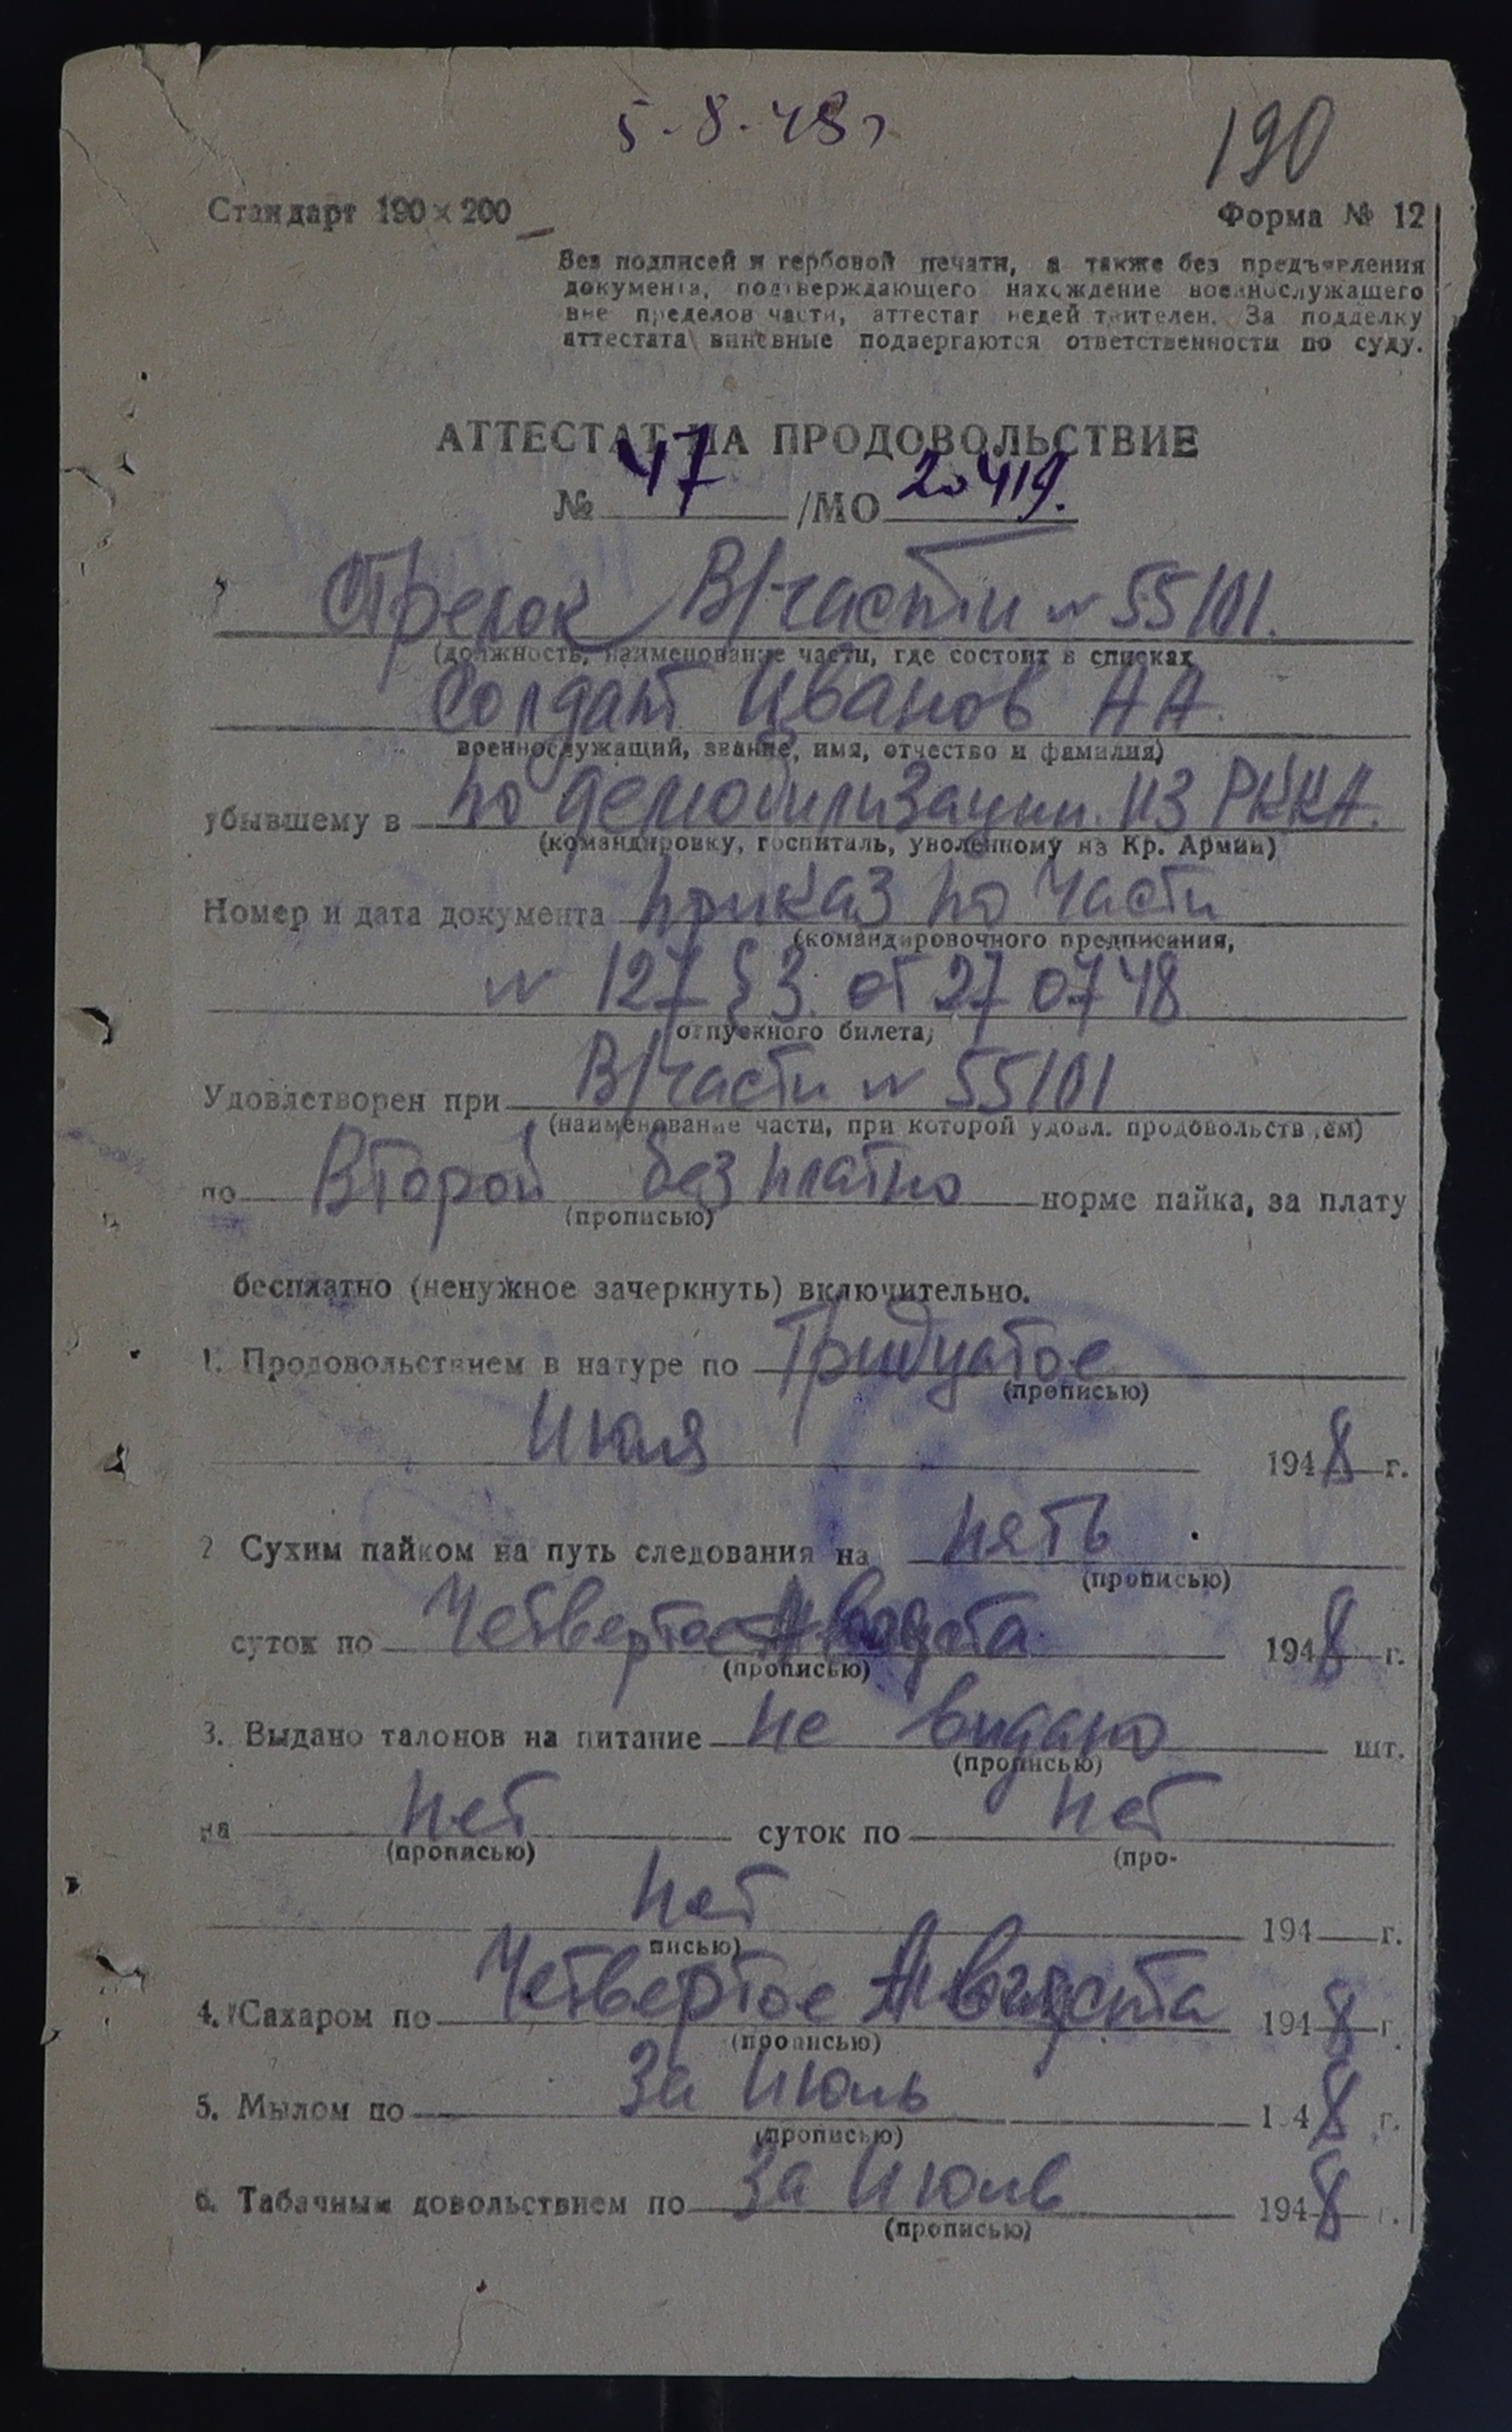 5-8-48г
190
Стандарт 190×200
Форма № 12
Без подписей и гербовой печати, а также без предъявления
документа, подтверждающего нахождение военнослужащего
вне пределов части, аттестат недействителен. За подделку
аттестата виневные подвергаются ответственности по суду.
АТТЕСТАТ НА ПРОДОВОЛЬСТВИЕ
№ 47 /МО 20419.
Стрелок В/части № 55101.
(должность, наименование части, где состоит в списках
Солдат Иванов АА.
военнослужащий, звание, имя, отчество и фамилия)
убывшему в по демобилизации из РККА.
(командировку, госпиталь, уволенному из Кр. Армии)
Номер и дата документа приказ по части
(командировочного предписания,
№ 127 § 3. от 27 07 48
отпускного билета,
Удовлетворен при В/части № 55101
(наименование части, при которой удовл. продовольствием)
по Второй безплатно норме пайка, за плату
(прописью)
бесплатно (ненужное зачеркнуть) включительно.
1. Продовольствием в натуре по Тридцатое
(прописью)
Июля 1948 г.
2 Сухим пайком на путь следования на пять
(прописью)
суток по Четвертое Августа 1948 г.
(прописью)
3. Выдано талонов на питание не видано шт.
(прописью)
на нет суток по нет
(прописью) (про-
нет 194 г.
писью)
4. Сахаром по Четвертое Августа 1948 г
(прописью)
5. Мылом по За Июль 1 48 г.
(прописью)
6. Табачным довольствием по За Июль 1948 г.
(прописью)